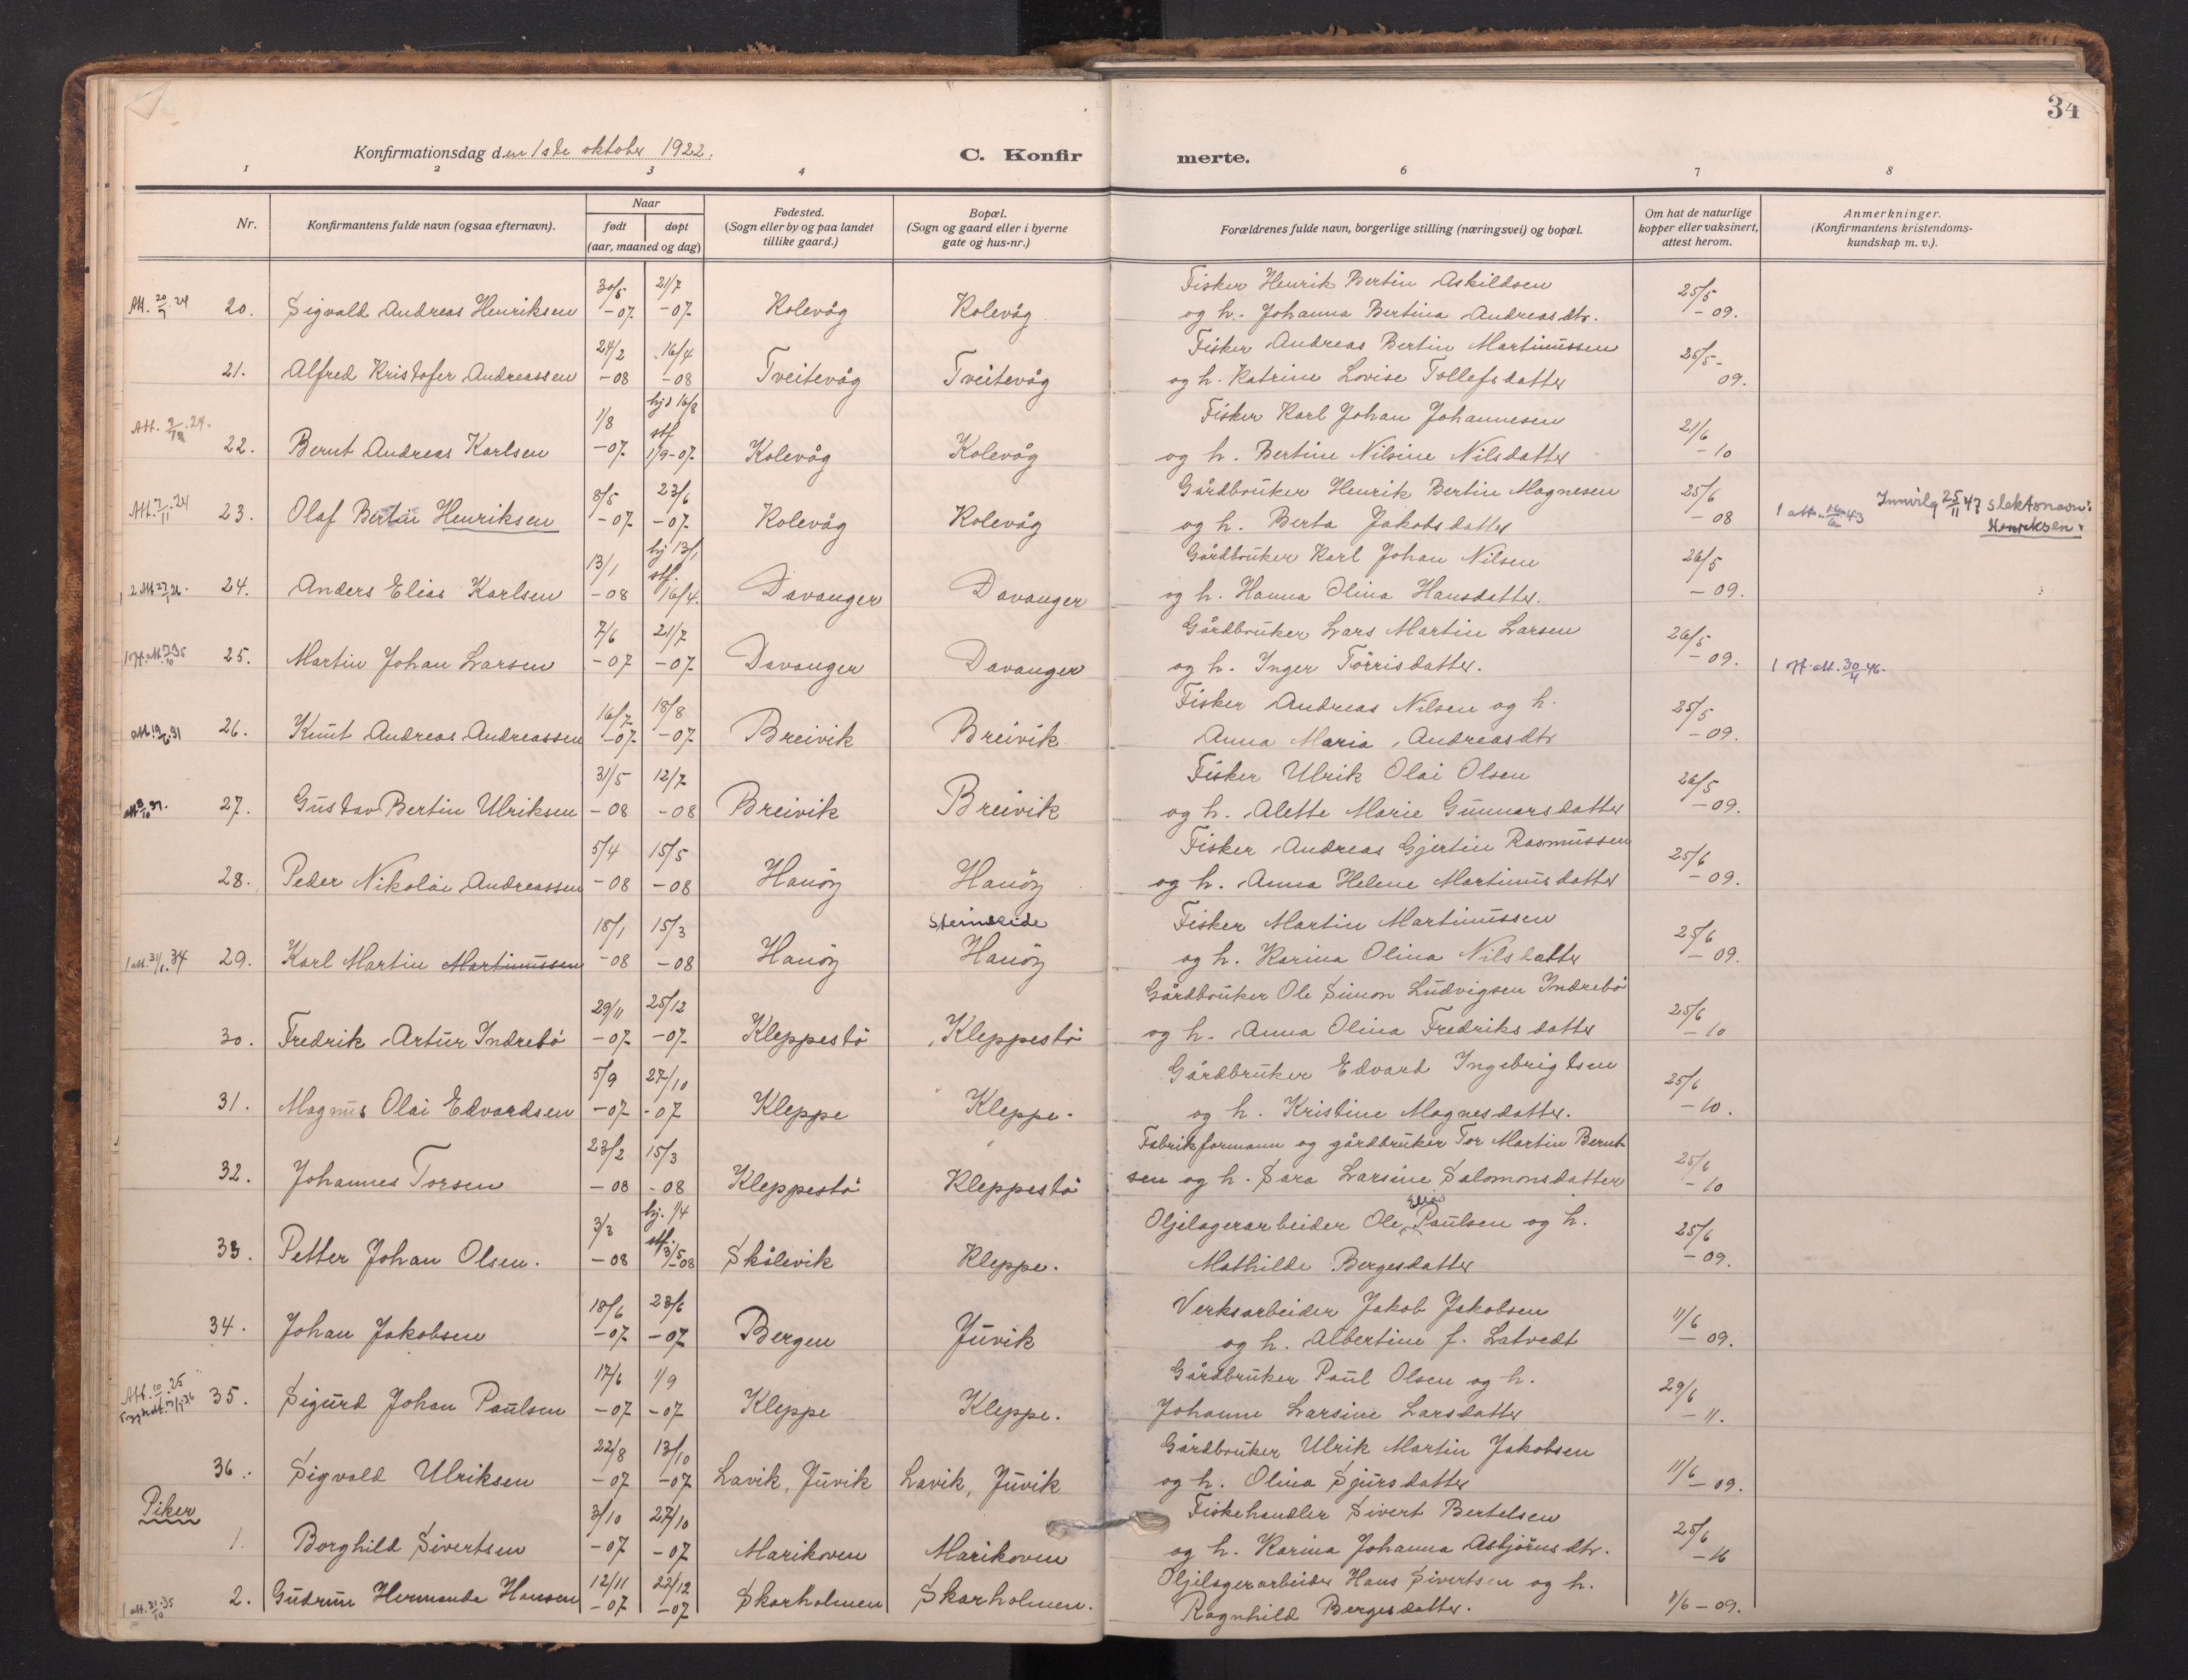 34
Konfirmationsdag den 1ste oktober 1922.
C. Konfir
merte.
1 2 3 4 6 7 8
Nr.
Konfirmantens fulde navn (ogsaa efternavn).
Naar
født
døpt
(aar, maaned og dag)
Fødested.
(Sogn eller by og paa landet
tillike gaard.)
Bopæl.
(Sogn og gaard eller i byerne
gate og hus-nr.)
Forældrenes fulde navn, borgerlige stilling (næringsvei) og bopæl.
Om hat de naturlige
kopper eller vaksinert,
attest herom.
Anmerkninger.
(Konfirmantens kristendoms-
kundskap m. v.).
Fisker Henrik Bertin Askildsen
20. Sigvald Andreas Henriksen 30/5 -07. 21/7 -07. Kolevåg Kolevåg og h. Johanna Bertina Andreasdtr. 25/5 -09.
Fisker Andreas Bertin Martinussen
21. Alfred Kristofer Andreassen 24/2 -08 16/4 -08 Tveitevåg Tveitevåg og h. Katrine Lovise Tollefsdatter 25/5- 09.
Att. 24.
Fisker Karl Johan Johannesen
22. Bernt Andreas Karlsen 1/8 -07. hjd 16/8 stf. 1/9-07. Kolevåg Kolevåg og h. Bertine Nilsine Nilsdatter 21/6 -10
Gårdbruker Henrik Bertin Magnesen
Att. 7/11.24 23. Olaf Bertin Henriksen 8/5 -07. 23/6 -07. Kolevåg Kolevåg og h. Berta Jakobsdatter 25/6 -08 Innvilg 25/11 47 slektsnavn:
Henriksen.
Gårdbruker Karl Johan Nilsen
24. Anders Elias Karlsen 13/1 -08 hj 13/1 stf. 16/4. Davanger Davanger og h. Hanna Olina Hansdatter. 26/5 -09.
Gårdbruker Lars Martin Larsen
25. Martin Johan Larsen 7/6 -07 21/7 -07. Davanger Davanger og h. Inger Törrisdatter. 26/5 -09. 1 att. 30/4 46.
Fisker Andreas Nilsen og h.
26. Knut Andreas Andreassen 16/7 -07. 18/8 -07. Breivik Breivik Anna Maria Andreasdtr 25/5 -09.
Fisker Ulrik Olai Olsen
27. Gustav Bertin Ulriksen 31/5 -08 12/7 -08 Breivik Breivik og h. Alette Marie Gunnarsdatter 26/5 -09.
Fisker Andreas Gjertin Rasmussen
28. Peder Nikolai Andreassen 5/4 -08 15/5 -08 Hanöy Hanöy og h. Anna Helene Martinusdatter 25/6 -09.
Steinseide
Fisker Martin Martinussen
1 att. 31/1.34 29. Karl Martin Martinussen 18/1 -08 15/3 -08 Hanöy Hanöy og h. Karina Olina Nilsdatter 25/6 -09.
Gårdbruker Ole Simon Ludvigsen Indrebö
30. Fredrik Artur Indrebö 29/11 -07. 25/12 -07. Kleppestö Kleppestö og h. Anna Olina Fredriksdatter 25/6 -10
Gårdbruker Edvard Ingebrigtsen
31. Magnus Olai Edvardsen 5/9 -07 27/10 -07 Kleppe Kleppe. og h. Kristine Magnesdatter. 25/6 -10.
Fabrikformann og gårdbruker Tor Martin Bernt-
32. Johannes Torsen 23/2 -08 15/3 -08 Kleppestö Kleppestö sen og h. Sara Larsine Salomonsdatter 25/6 -10
Oljelagerarbeider Ole Elias Paulsen og h.
33. Petter Johan Olsen. 3/3 -08 hj. 1/4 stf. 31/5-08 Skålevik Kleppe. Mathilde Bergesdatter 25/6 -09.
Verksarbeider Jakob Jakobsen
34. Johan Jakobsen 18/6 -07. 23/6 -07 Bergen Juvik og h. Albertine f. Latvedt 11/6 -09.
Gårdbruker Paul Olsen og h.
Att. 10/1.25 35. Sigurd Johan Paulsen 17/6 -07 1/9 -07 Kleppe Kleppe. Johanne Larsine Larsdatter 29/6 -11.
Gårdbruker Ulrik Martin Jakobsen
36. Sigvald Ulriksen 22/8 -07 13/10 -07 Lavik, Juvik Lavik, Juvik og h. Olina Sjursdatter 11/6 -09.
Piker
Fiskehandler Sivert Bertelsen
1. Borghild Sivertsen 3/10 -07 27/10 -07 Marikoven Marikoven og h. Karina Johanna Asbjörnsdtr. 25/6 -16
Oljelagerarbeider Hans Sivertsen og h.
1 att. 21/10.35 2. Gudrun Hermanda Hansen 12/11 -07 22/12 -07 Skarholmen Skarholmen. Ragnhild Bergesdatter. 11/6 -09.